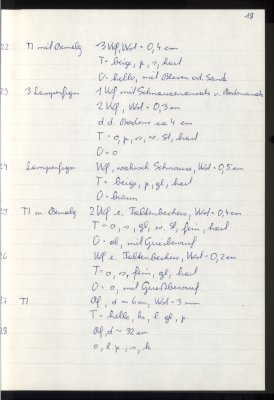 18
22 TI mit Bemalg 3 Wf, Wst = 0,4 cm
T = beige, p, s, hart
Ü = hello, mit Blasen od. Sand
23 3 Lampenfrgm 1 Wf mit Schnauzenansatz u. Bodenansatz
2 Wf, Wst = 0,3 cm
d. d. Bodens ca 4 cm
T = o, p, s, w. St, hart
Ü = o
24 Lampenfrgm Wf, wahrsch Schnauze, Wst = 0,5 cm
T = beige, p, gl, hart
Ü = braun
25 TI m. Bemalg 2 Wf e. Faltenbechers, Wst = 0,4 cm
T = o, s, gl, w. St, fein, hart
Ü = ob, mit Griesbewurf
26 Wf e. Faltenbechers, Wst = 0,2 cm
T = o, s, fein, gl, hart
Ü = o, mit Grießbewurf
27 TI Rf, d ~ 6 cm, Wst = 3 mm
T = hello, k, l. gl, p
28 Rf, d ~ 32 cm
o, l. p, s, k